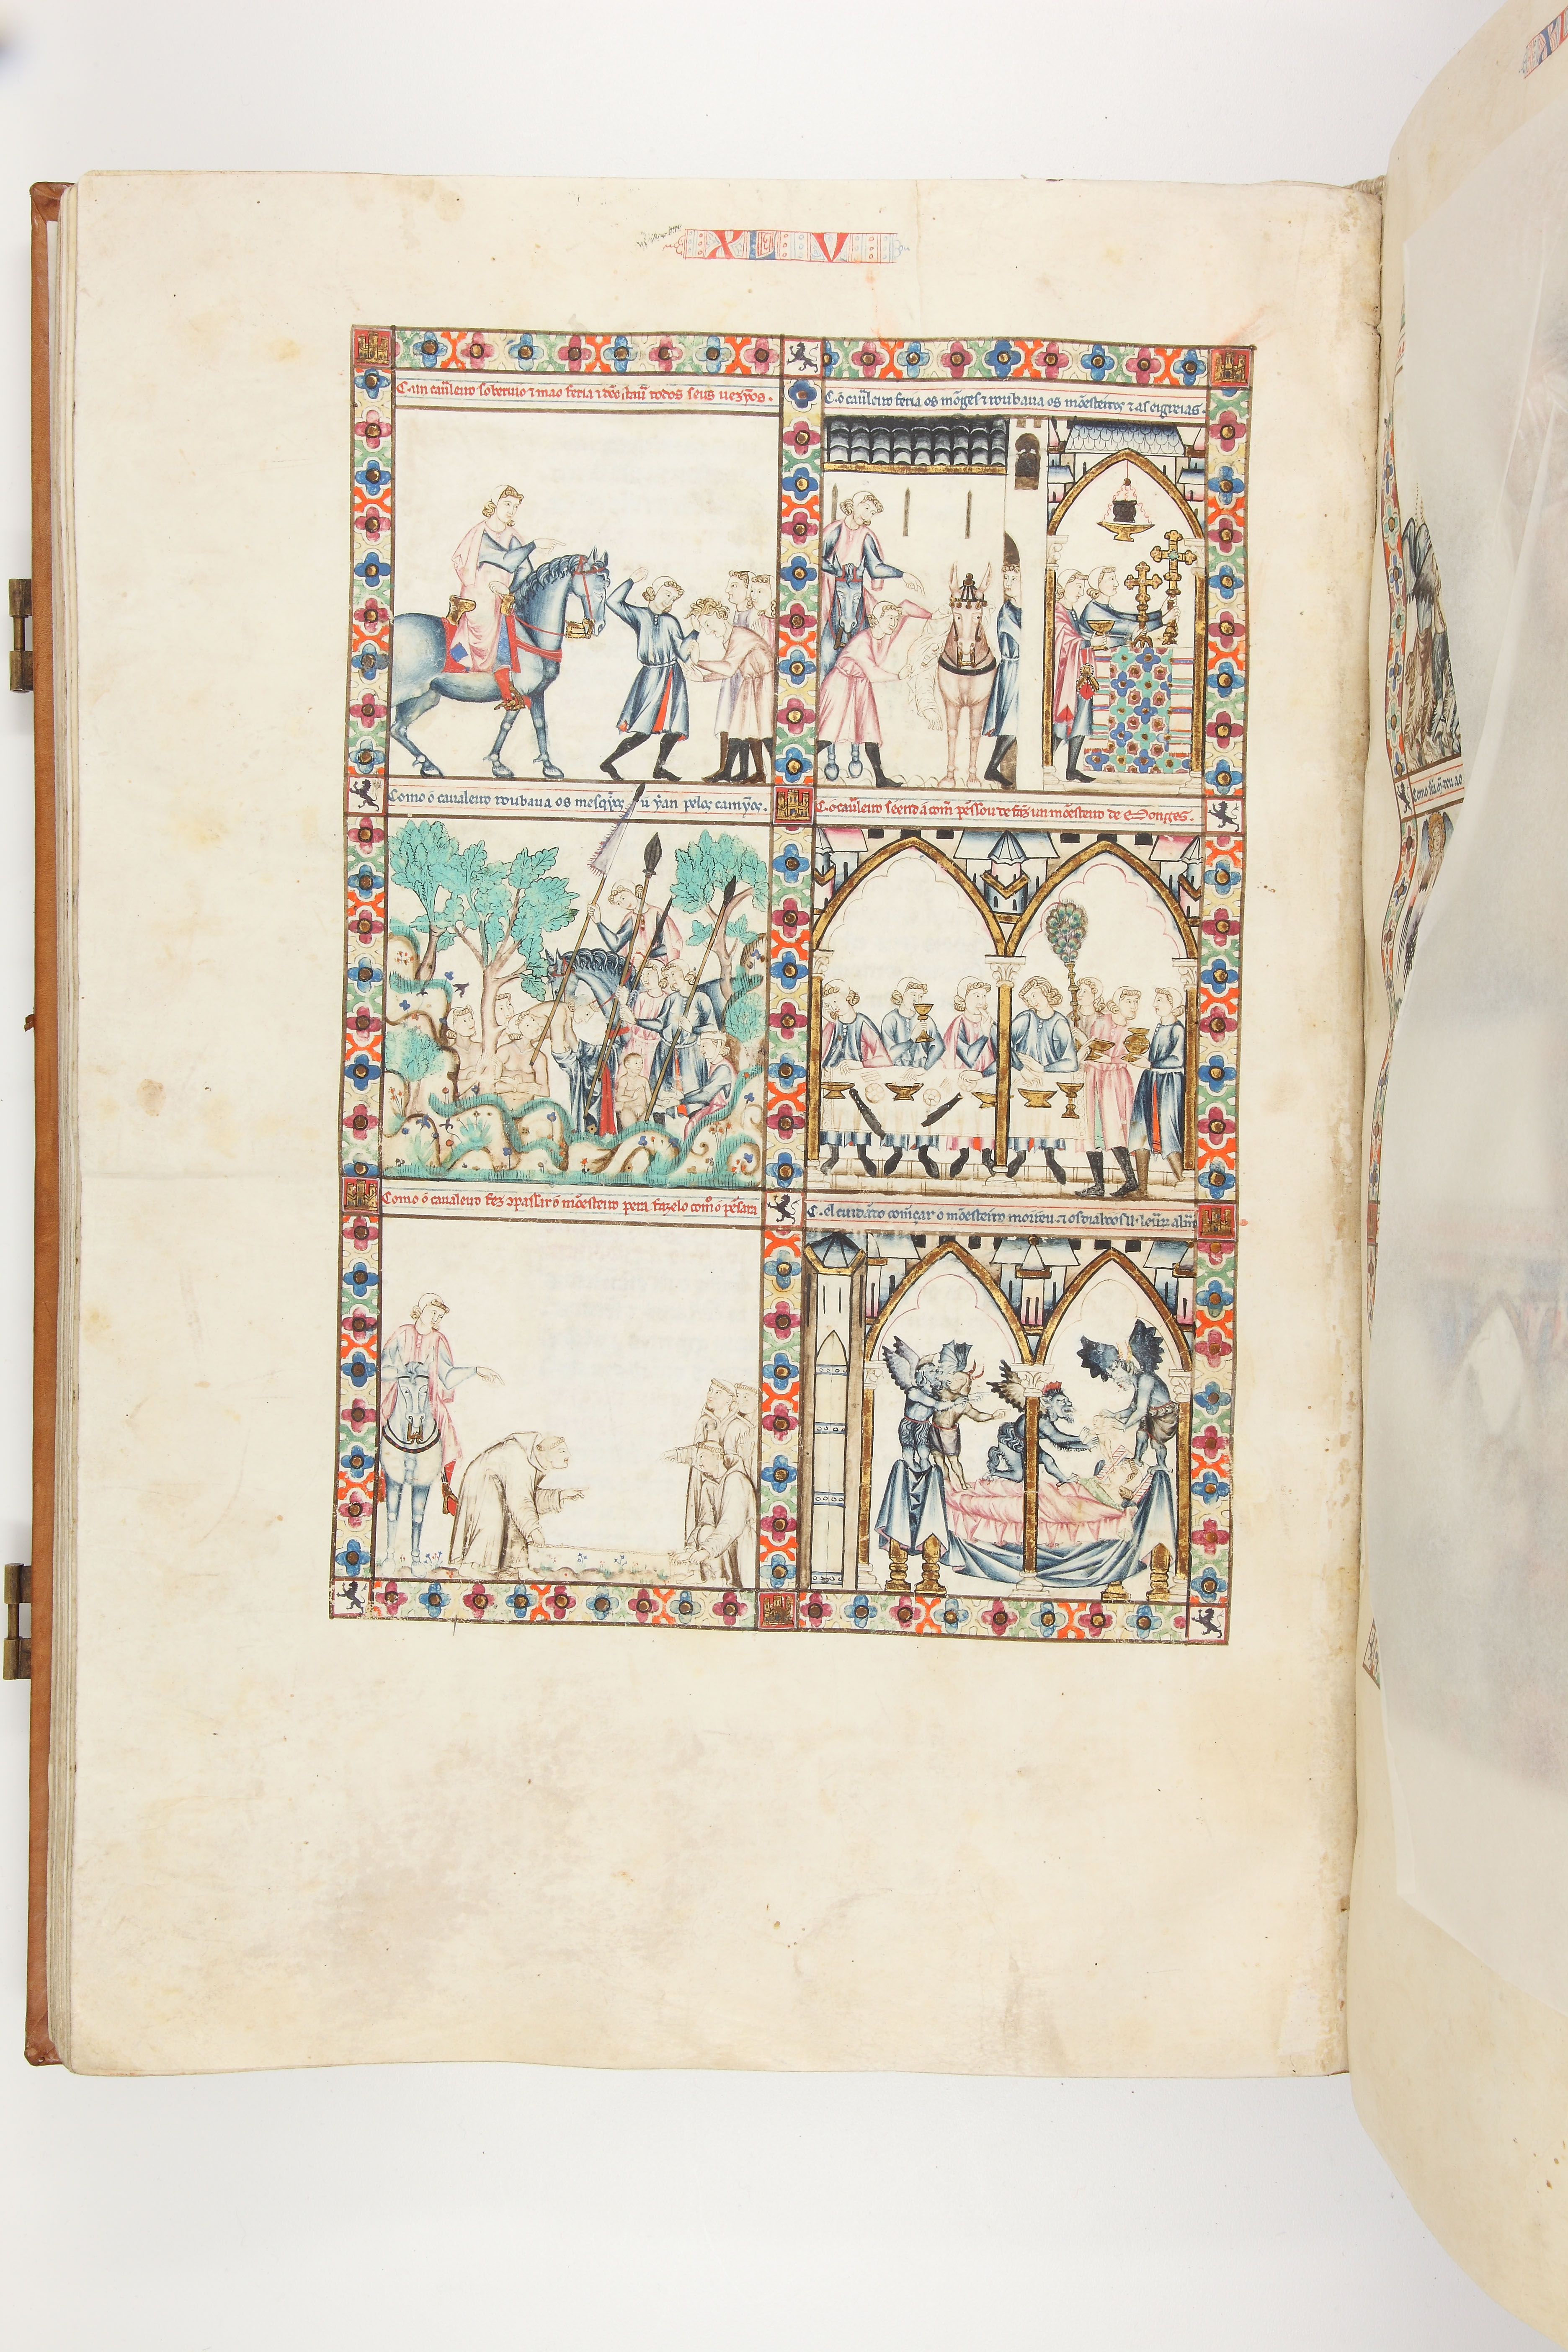 XLV
C. un caual̄eiro soberuio ⁊ mao feria ⁊ dẽostaũ todos seus uezỹos.
C. o caual̄eiro feria os mõges ⁊ roubaua os mõesteiros ⁊ as eigreias.
Como o caualeiro roubaua os mesqỹos q̃ yan pelos camỹos.
C. o caual̄eiro seẽndo a com̃ pẽssou de faz̃ un mõesteiro de Monges.
Como o caualeiro fez cõpassar o mõesteiro pera fazelo comº o pẽsara
C. el cuidãdo começar o mõesteiro morreu ⁊ os diabos
Como
XL